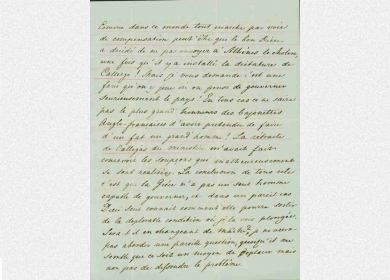 Comme dans ce monde tout marche par voie
de compensation peut être que le bon Dieu
a décidé de ne pas envoyer à Athènes le choléra,
une fois qu'il y a installé la dictature de
Callergi! Mais je vous demande c'est une
fois qu'on y joue ou on pense de gouverner
sérieusement le pays! En tous cas ce ne sera
pas le plus grand des Bayonettes
Anglo-françaises d'avoir prétendu de faire
d'un fat un grand homme! La retraite
de Callergis du ministère m'avait fait
concevoir les soupçons qui malheureusement
se sont réalisés. La conclusion de tous cela
c'est que la Grèce n'a pas un seul homme
capable de gouverner, et dans un pareil cas
Dieu seul connait comment elle pourra sortir
de la deplorable condition où je la vois plongée.
Sera t il en changeant de je ne veux
pas aborder une pareille question, quoiqu'il me
semble que ce soit un moyen de deplacer mais
non pas de dissoudre le problême.